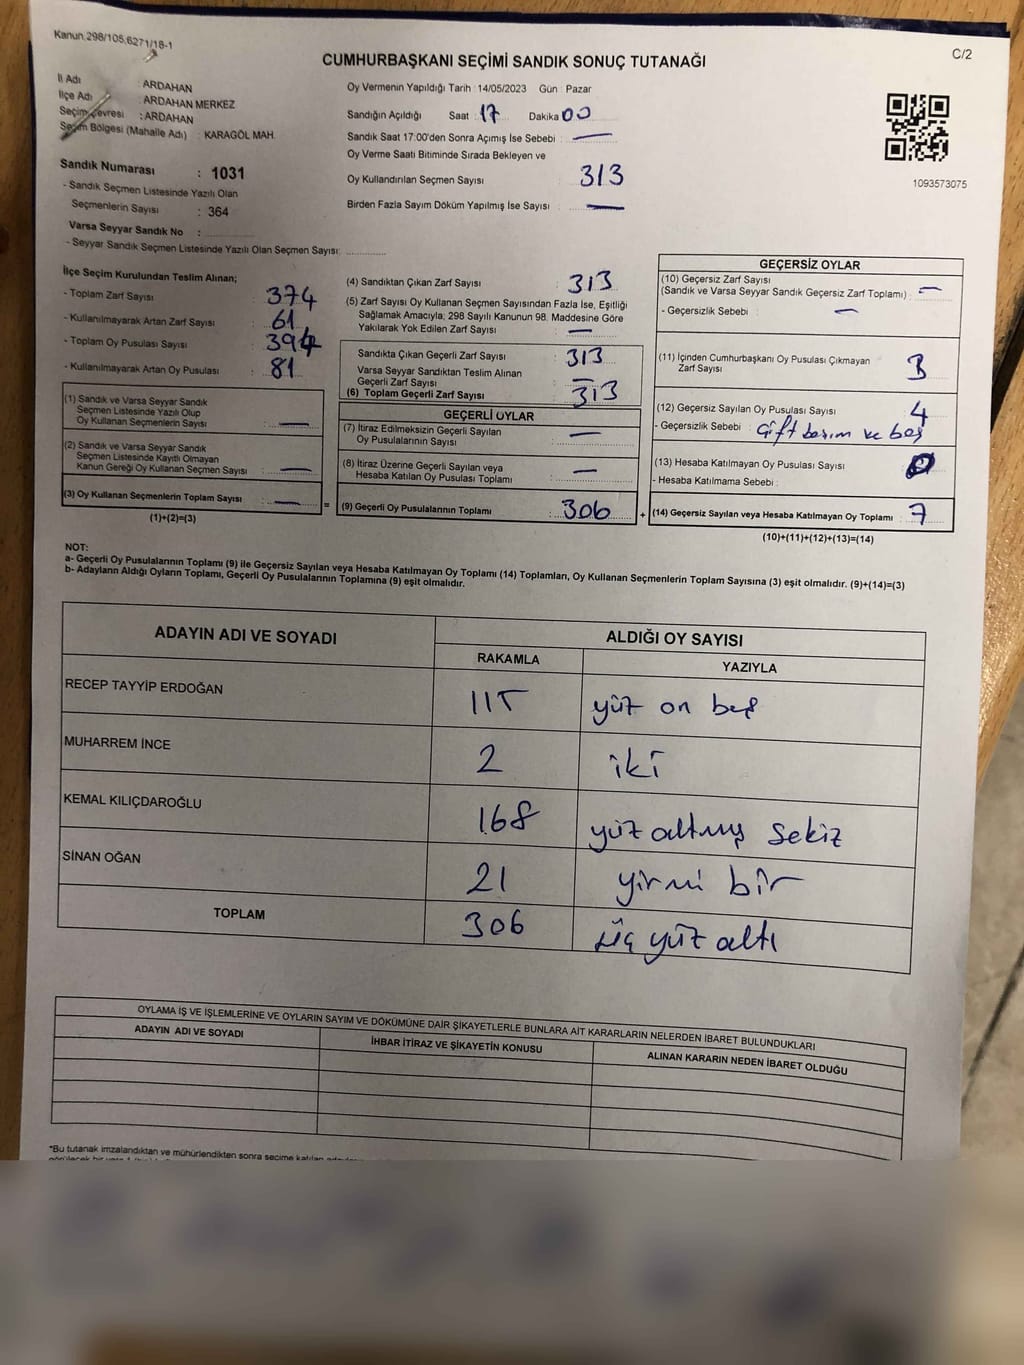 Kanun.298/105,6271/18-1
C/2
CUMHURBAŞKANI SEÇİMİ SANDIK SONUÇ TUTANAĞI
İl Adı : ARDAHAN
İlçe Adı : ARDAHAN MERKEZ
Seçim Çevresi : ARDAHAN
Seçim Bölgesi (Mahalle Adı) : KARAGÖL MAH.
Sandık Numarası : 1031
- Sandık Seçmen Listesinde Yazılı Olan
Seçmenlerin Sayısı : 364
Varsa Seyyar Sandık No :
- Seyyar Sandık Seçmen Listesinde Yazılı Olan Seçmen Sayısı:
Oy Vermenin Yapıldığı Tarih : 14/05/2023 Gün : Pazar
Sandığın Açıldığı Saat : 17 Dakika 00
Sandık Saat 17:00'den Sonra Açımış İse Sebebi : —
Oy Verme Saati Bitiminde Sırada Bekleyen ve
Oy Kullandırılan Seçmen Sayısı : 313
Birden Fazla Sayım Döküm Yapılmış İse Sayısı : —
1093573075
İlçe Seçim Kurulundan Teslim Alınan;
- Toplam Zarf Sayısı : 374
- Kullanılmayarak Artan Zarf Sayısı : 61
- Toplam Oy Pusulası Sayısı : 394
- Kullanılmayarak Artan Oy Pusulası : 81
(1) Sandık ve Varsa Seyyar Sandık
Seçmen Listesinde Yazılı Olup
Oy Kullanan Seçmenlerin Sayısı : —
(2) Sandık ve Varsa Seyyar Sandık
Seçmen Listesinde Kayıtlı Olmayan
Kanun Gereği Oy Kullanan Seçmen Sayısı : —
(3) Oy Kullanan Seçmenlerin Toplam Sayısı : —
(1)+(2)=(3)
=
(4) Sandıktan Çıkan Zarf Sayısı : 313
(5) Zarf Sayısı Oy Kullanan Seçmen Sayısından Fazla İse, Eşitliği
Sağlamak Amacıyla; 298 Sayılı Kanunun 98. Maddesine Göre
Yakılarak Yok Edilen Zarf Sayısı : —
Sandıkta Çıkan Geçerli Zarf Sayısı : 313
Varsa Seyyar Sandıktan Teslim Alınan
Geçerli Zarf Sayısı : —
(6) Toplam Geçerli Zarf Sayısı : 313
GEÇERLİ OYLAR
(7) İtiraz Edilmeksizin Geçerli Sayılan
Oy Pusulalarının Sayısı : —
(8) İtiraz Üzerine Geçerli Sayılan veya
Hesaba Katılan Oy Pusulası Toplamı : —
(9) Geçerli Oy Pusulalarının Toplamı : 306
+
GEÇERSİZ OYLAR
(10) Geçersiz Zarf Sayısı
(Sandık ve Varsa Seyyar Sandık Geçersiz Zarf Toplamı) : —
- Geçersizlik Sebebi : —
(11) İçinden Cumhurbaşkanı Oy Pusulası Çıkmayan
Zarf Sayısı : 3
(12) Geçersiz Sayılan Oy Pusulası Sayısı : 4
- Geçersizlik Sebebi : Çift basım ve boş
(13) Hesaba Katılmayan Oy Pusulası Sayısı : 0
- Hesaba Katılmama Sebebi :
(14) Geçersiz Sayılan veya Hesaba Katılmayan Oy Toplamı : 7
(10)+(11)+(12)+(13)=(14)
NOT:
a- Geçerli Oy Pusulalarının Toplamı (9) ile Geçersiz Sayılan veya Hesaba Katılmayan Oy Toplamı (14) Toplamları, Oy Kullanan Seçmenlerin Toplam Sayısına (3) eşit olmalıdır. (9)+(14)=(3)
b- Adayların Aldığı Oyların Toplamı, Geçerli Oy Pusulalarının Toplamına (9) eşit olmalıdır.
ADAYIN ADI VE SOYADI ALDIĞI OY SAYISI
RAKAMLA YAZIYLA
RECEP TAYYİP ERDOĞAN 115 yüz on beş
MUHARREM İNCE 2 iki
KEMAL KILIÇDAROĞLU 168 yüz altmış sekiz
SİNAN OĞAN 21 yirmi bir
TOPLAM 306 üç yüz altı
OYLAMA İŞ VE İŞLEMLERİNE VE OYLARIN SAYIM VE DÖKÜMÜNE DAİR ŞİKAYETLERLE BUNLARA AİT KARARLARIN NELERDEN İBARET BULUNDUKLARI
ADAYIN ADI VE SOYADI İHBAR İTİRAZ VE ŞİKAYETİN KONUSU ALINAN KARARIN NEDEN İBARET OLDUĞU
*Bu tutanak imzalandıktan ve mühürlendikten sonra seçime katılan